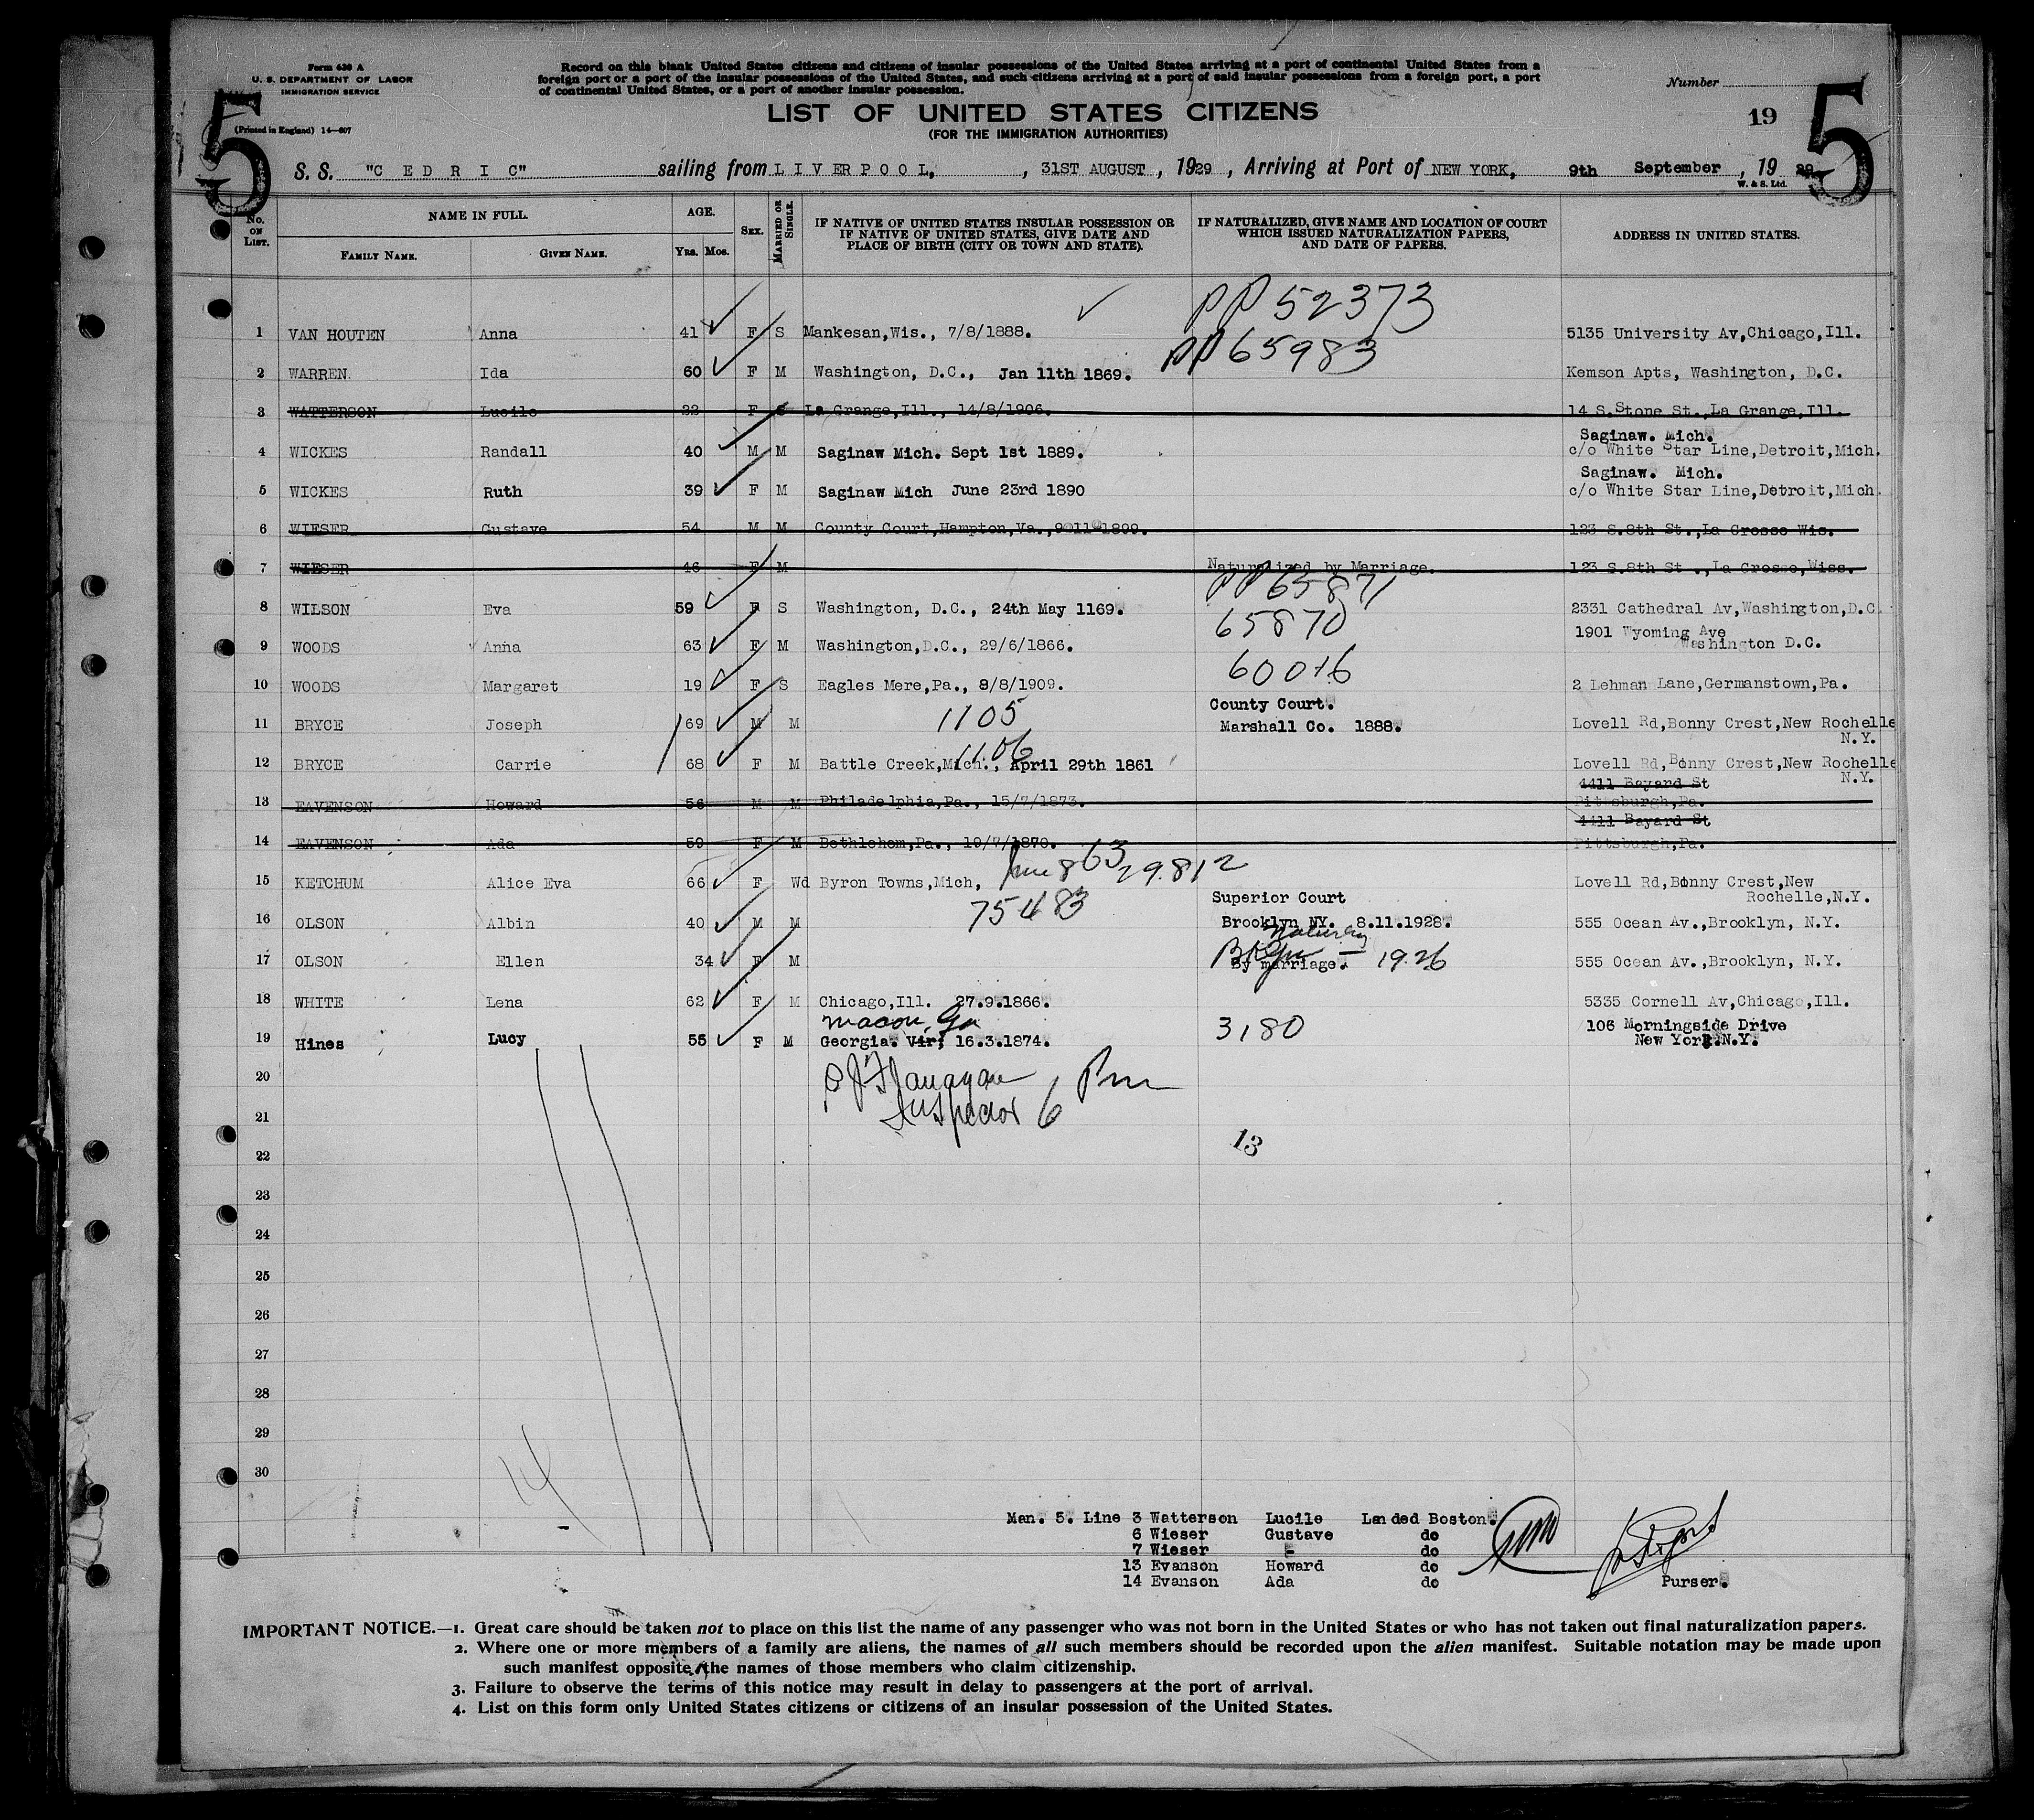 Form 630 A
U. S. DEPARTMENT OF LABOR
IMMIGRATION SERVICE
(Printed in England) 14—607
5
Record on this blank United States citizens and citizens of insular possessions of the United States arriving at a port of continental United States from a
foreign port or a port of the insular possessions of the United States, and such citizens arriving at a port of said insular possessions from a foreign port, a port
of continental United States, or a port of another insular possession.
LIST OF UNITED STATES CITIZENS
(FOR THE IMMIGRATION AUTHORITIES)
Number
19
5
S. S. "CEDRIC" sailing from LIVERPOOL, , 31ST AUGUST , 1929 , Arriving at Port of NEW YORK, 9th September , 19 29
W. & S. Ltd.
No. ON LIST. NAME IN FULL. FAMILY NAME. GIVEN NAME. AGE. YRS. MOS. SEX. MARRIED OR SINGLE. IF NATIVE OF UNITED STATES INSULAR POSSESSION OR IF NATIVE OF UNITED STATES, GIVE DATE AND PLACE OF BIRTH (CITY OR TOWN AND STATE). IF NATURALIZED, GIVE NAME AND LOCATION OF COURT WHICH ISSUED NATURALIZATION PAPERS, AND DATE OF PAPERS. ADDRESS IN UNITED STATES.
PP 52373
1 VAN HOUTEN Anna 41 F S Mankesan,Wis., 7/8/1888. 5135 University Av,Chicago,Ill.
PP 65983
2 WARREN Ida 60 F M Washington, D.C., Jan 11th 1869. Kemson Apts, Washington, D.C.
3 WATTERSON Lucile 22 F S La Grange,Ill., 14/8/1906. 14 S.Stone St.,La Grange,Ill.
Saginaw. Mich.
4 WICKES Randall 40 M M Saginaw Mich. Sept 1st 1889. c/o White Star Line,Detroit,Mich.
Saginaw. Mich.
5 WICKES Ruth 39 F M Saginaw Mich June 23rd 1890 c/o White Star Line,Detroit,Mich.
6 WIESER Gustave 54 M M County Court,Hampton,Va.,9 11 1899. 123 S.8th St.,La Crosse Wis.
7 WIESER 46 F M Naturalized by Marriage. 123 S.8th St .,La Crosse,Wiss.
PP 65871
8 WILSON Eva 59 F S Washington, D.C., 24th May 1169. 2331 Cathedral Av,Washington,D.C.
65870
1901 Wyoming Ave
9 WOODS Anna 63 F M Washington,D.C., 29/6/1866. Washington D.C.
60016
10 WOODS Margaret 19 F S Eagles Mere,Pa., 8/8/1909. 2 Lehman Lane,Germanstown,Pa.
County Court.
11 BRYCE Joseph 69 M M 1105 Marshall Co. 1888. Lovell Rd,Bonny Crest,New Rochelle
N.Y.
1106
12 BRYCE Carrie 68 F M Battle Creek,Mich., April 29th 1861 Lovell Rd,Bonny Crest,New Rochelle
N.Y.
4411 Bayard St
13 EAVENSON Howard 56 M M Philadelphia,Pa., 15/7/1873. Pittsburgh,Pa.
4411 Bayard St
14 EAVENSON Ada 59 F M Bethlehem,Pa., 19/7/1870. Pittsburgh,Pa.
15 KETCHUM Alice Eva 66 F Wd Byron Towns,Mich, June 8 63 29812 Lovell Rd,Bonny Crest,New
Rochelle,N.Y.
75483 Superior Court
16 OLSON Albin 40 M M Brooklyn NY. 8.11.1928. 555 Ocean Av.,Brooklyn, N.Y.
17 OLSON Ellen 34 F M By marriage. Bklyn — 1926 555 Ocean Av.,Brooklyn, N.Y.
18 WHITE Lena 62 F M Chicago,Ill. 27.9.1866. 5335 Cornell Av,Chicago,Ill.
Macon, Ga
106 Morningside Drive
19 Hines Lucy 55 F M Georgia. Vir; 16.3.1874. 3180 New York.N.Y.
20
P J Flanagan
21
Inspector 6 Pm
13
22
23
24
25
26
27
28
29
30
14
Man. 5. Line 3 Watterson Lucile Landed Boston.
6 Wieser Gustave do
7 Wieser - do
13 Evanson Howard do
14 Evanson Ada do
Purser.
IMPORTANT NOTICE.—1. Great care should be taken not to place on this list the name of any passenger who was not born in the United States or who has not taken out final naturalization papers.
2. Where one or more members of a family are aliens, the names of all such members should be recorded upon the alien manifest. Suitable notation may be made upon
such manifest opposite the names of those members who claim citizenship.
3. Failure to observe the terms of this notice may result in delay to passengers at the port of arrival.
4. List on this form only United States citizens or citizens of an insular possession of the United States.